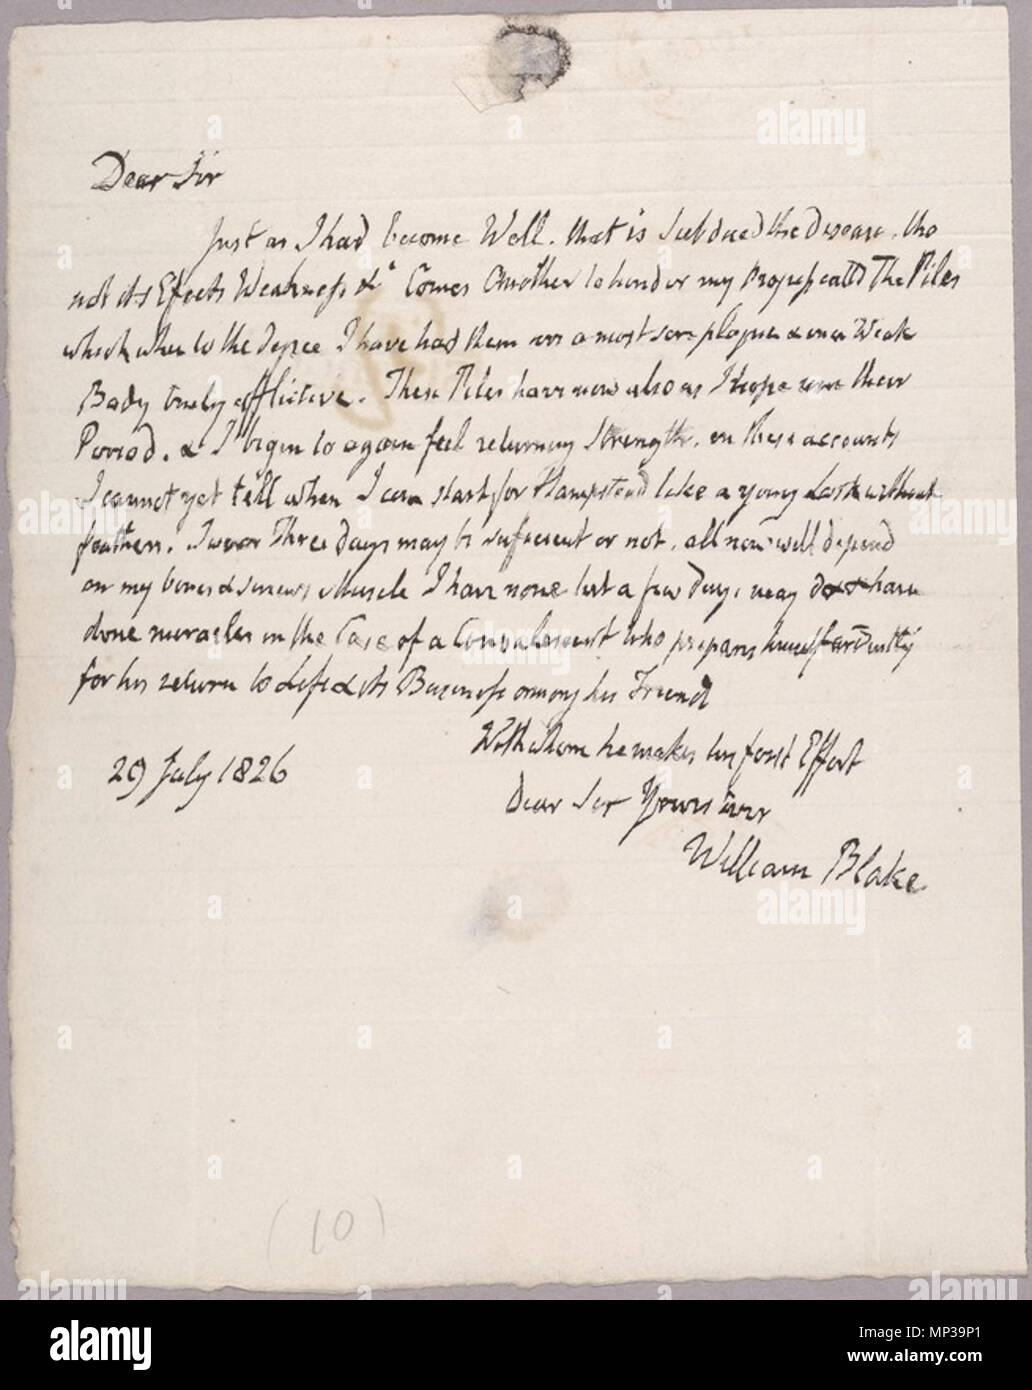 Dear Sir
Just as I had become Well. that is Subdued the disease. tho
not its Effects Weakness &c Comes Another to hinder my Progress calld The Piles
which when to the degree I have had them are a most sore plague & on a Weak
Body truly afflictive. These Piles have now also as I hope run their
Period. & I begin to again feel returning Strength. on these accounts
I cannot yet tell when I can start for Hampstead like a young Lark without
feathers. Two or Three days may be sufficient or not. all now will depend
on my bones & sinews Muscle I have none but a few days may do & have
done miracles in the Case of a Convalescent who prepares himself ardently
for his return to Life & its Business among his Friends
With whom he makes his first Effort
Dear Sir Yours Ever
29 July 1826
William Blake
(10)
alamy
Image ID: MP39P1
www.alamy.com